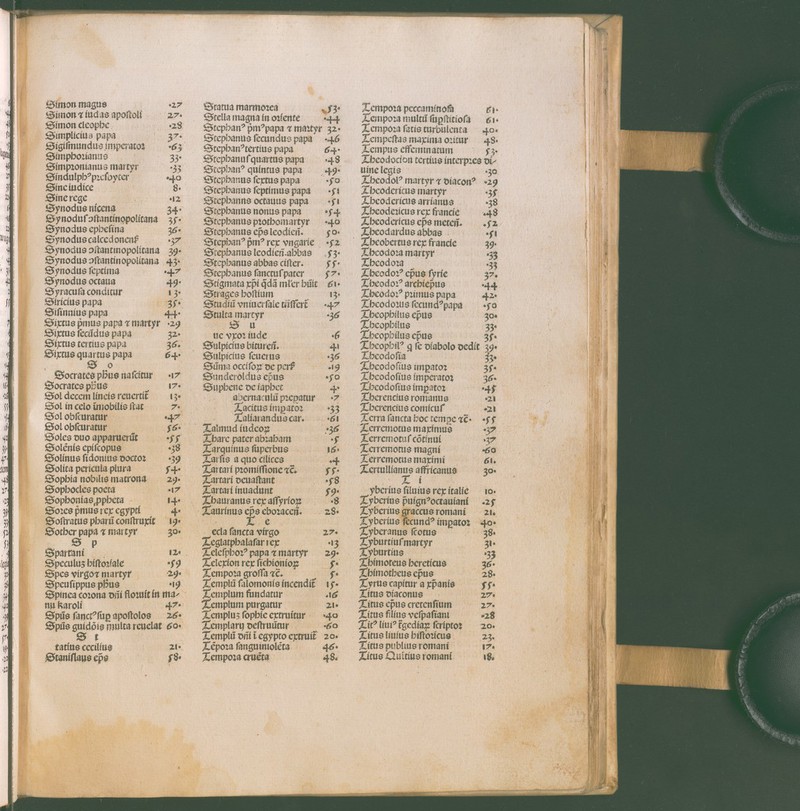 Simon magus ·27
Simon ⁊ iudas apostoli 27·
Simon cleophe ·28
Simplicius papa 37·
Sigismundus imperator ·63
Simphorianus 33·
Simpronianus martyr ·33
Sindulphꝰ presbyter ·40
Sine iudice 8·
Sine rege ·12
Synodus nicena 34·
Synodus ꝯstantinopolitana 35·
Synodus ephesina 36·
Synodus calcedonens̄ ·37
Synodus ꝯstantinopolitana 39·
Synodus ꝯstantinopolitana 43·
Synodus septima ·47
Synodus octaua 49·
Syracusa conditur 13·
Siricius papa 35·
Sisinnius papa 44·
Sixtus p̄mus papa ⁊ martyr ·29
Sixtus secūdus papa 32·
Sixtus tertius papa 36·
Sixtus quartus papa 64·
S o
Socrates ph̄us nascitur ·17
Socrates ph̄us 17·
Sol decem lineis reuertit̄ 13·
Sol in celo īmobilis stat 7·
Sol obscuratur ·47
Sol obscuratur 56·
Soles duo apparuerūt ·55
Solēnis episcopus ·38
Solinus sidonius doctor ·39
Solita pericula plura 54·
Sophia nobilis matrona 29·
Sophocles poeta ·17
Sophonias ꝓpheta 14·
Sores p̄mus rex egypti 4·
Sostratus pharū construxit 19·
Sother papa ⁊ martyr 30·
S p
Spartani 12·
Speculū historiale ·59
Spes virgo ⁊ martyr 29·
Speusippus ph̄us ·19
Spinea corona dn̄i floruit in ma-
nu karoli 47·
Sp̄us sanctꝰ sup̄ apostolos 26·
Sp̄us guidōis multa reuelat 60·
S t
tatius cecilius 21·
Stanislaus ep̄s 58·
Statua marmorea 53·
Stella magna in oriente ·44
Stephanꝰ p̄mꝰ papa ⁊ martyr 32·
Stephanus secundus papa ·46
Stephanꝰ tertius papa 64·
Stephanus quartus papa ·48
Stephanꝰ quintus papa 49·
Stephanus sextus papa ·50
Stephanus septimus papa ·51
Stephanus octauus papa ·51
Stephanus nonus papa ·54
Stephanus prothomartyr ·40
Stephanus ep̄s leodien̄. 50·
Stephanꝰ p̄mꝰ rex vngarie ·52
Stephanus leodien̄. abbas 53·
Stephanus abbas cister. 55·
Stephanus sanctus pater 57·
Stigmata xp̄i q̄dā ml̄er hūit 61·
Strages hostium 13·
Studiū vniuersale trāsfert̄ ·47
Stulta martyr ·36
S u
ue vxor iude ·6
Sulpicius bituren̄. 41
Sulpicius seuerus ·36
Sūma occisoꝝ de pers̄ ·19
Sunderoldus ep̄us ·50
Suphene de iaphet 4·
abernaculū p̄paratur ·7
Tacitus imꝑator ·33
Taliarandus car. ·61
Talmud iudeoꝝ ·36
Thare pater abraham ·5
Tarquinus superbus 16·
Tarsis a quo cilices ·4
Tartari promissione ⁊c̄. 55·
Tartari deuastant ·58
Tartari inuadunt 59·
Thauranus rex assyrioꝝ ·8
Taurinus ep̄s eboracen̄. 28·
T e
ecla sancta virgo 27·
Teglatphalasar rex ·13
Telesphorꝰ papa ⁊ martyr 29·
Telexion rex sichionioꝝ 5·
Tempora grossa ⁊c̄. 5·
Templū salomonis incendit̄ 15·
Templum fundatur ·16
Templum purgatur 21·
Templuꝫ sophie extruitur ·40
Templarij destruūtur ·60
Templū dn̄i ī egypto extruit̄ 20·
Tēpora sanguinolēta 46·
Tempora cruēta 48·
Tempora peccaminosa 61·
Tempora multū suꝑstitiosa 61·
Tempora satis turbulenta 40·
Tempestas maxima oritur 48·
Tempus effeminatum 53·
Theodocion tertius interpres di-
uine legis ·30
Theodolꝰ martyr ⁊ diaconꝰ ·29
Theodericus martyr ·35
Theodericus arrianus ·38
Theodericus rex francie ·48
Theodericus ep̄s meten̄. ·52
Theodardus abbas ·51
Theobertus rex francie 39·
Theodora martyr ·33
Theodora ·33
Theodorꝰ ep̄us syrie 37·
Theodorꝰ archiep̄us ·44
Theodorꝰ primus papa 42·
Theodorus secundꝰ papa ·50
Theophilus ep̄us 30·
Theophilus 33·
Theophilus ep̄us 35·
Theophilꝰ q̄ se diabolo dedit 39·
Theodosia 33·
Theodosius imꝑator 35·
Theodosius imperator 36·
Theodosius imꝑator ·45
Therencius romanus ·21
Therencius comicus ·21
Terra sancta hoc tempe ⁊c̄· ·55
Terremotus maximus ·37
Terremotus cōtinui ·37
Terremotus magni ·60
Terremotus maximi 61·
Tertullianus affricanus 30·
T i
yberius siluius rex italie 10·
Tyberius p̄uignꝰ octauiani ·25
Tyberius graccus romani 21·
Tyberius secundꝰ imꝑator 40·
Tyberanus scotus 38·
Tyburtius martyr 31·
Tyburtius ·33
Thimoteus hereticus 36·
Thimotheus ep̄us 28·
Tyrus capitur a xp̄anis 55·
Titus diaconus 27·
Titus ep̄us cretensium 27·
Titus filius vespasiani ·28
Titꝰ liuiꝰ t̄gediaꝝ scriptor 20·
Titus liuius historicus 23·
Titus publius romani 17·
Titus Quītius romani 18·